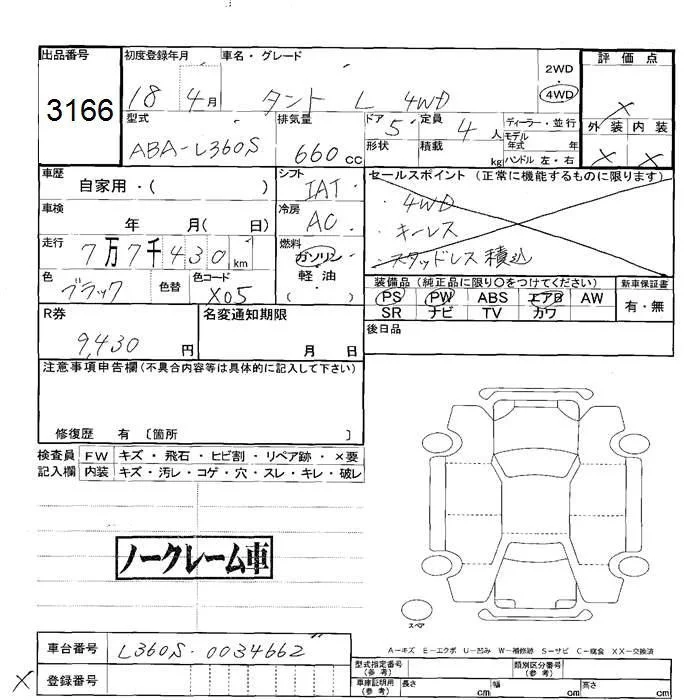 出品番号
3166
初度登録年月
18 4月
車名・グレード
タント L 4WD
2WD
4WD
評価点
×
外装 内装
× ×
型式
ABA-L360S
排気量
660 CC
ドア 5
形状
定員 4 人
積載 kg
ディーラー・並行
モデル年式 年
ハンドル 左・右
車歴
自家用・( )
シフト
IAT
セールスポイント (正常に機能するものに限ります)
・4WD
・キーレス
・スタッドレス積込
車検
年 月( 日)
冷房
AC
走行
7万7千430km
燃料
ガソリン
軽油
( )
色
ブラック
色替
色コード
X05
装備品 (純正品に限り○をつけてください)
PS PW ABS エアB AW
SR ナビ TV カワ
新車保証書
有・無
R券
9,430 円
名変通知期限
月 日
後日品
注意事項申告欄(不具合内容等は具体的に記入して下さい)
修復歴 有 〔箇所 〕
検査員記入欄
FW キズ・飛石・ヒビ割・リペア跡・×要
内装 キズ・汚レ・コゲ・穴・スレ・キレ・破レ
ノークレーム車
スペア
A-キズ E-エクボ U-凹み W-補修跡 S-サビ C-腐食 XX-交換済
車台番号
L360S-0034662
× 登録番号
型式指定番号
(参考)
類別区分番号
(参考)
車庫証明用
(参考)
長さ cm
幅 cm
高さ cm